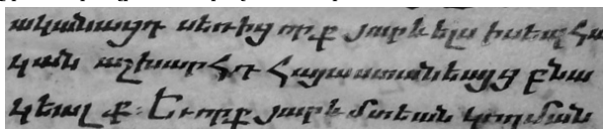 ականացդ սեռից որք յարևելս իսեալ հա
կան աշխարհդ Հայաստանեայց բնա
կեալ ք։ Եւ որք յարևմտեան կողման